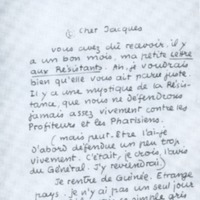 cher Jacques
vous avez dû recevoir, il y
a un bon mois, ma petite lettre
aux Résistants. Ah, je voudrais
bien qu'elle vous ait paru juste.
Il y a une mystique de la Résis-
tance, que nous ne défendrons
jamais assez vivement contre les
Profiteurs et les Pharisiens.
(mais peut-être l'ai-je
d'abord défendue un peu trop
vivement. C'était, je crois, l'avis
du Général. J'y reviendrai)
Je rentre de Guinée. Étrange
pays. Je n'y ai pas un seul jour
gris